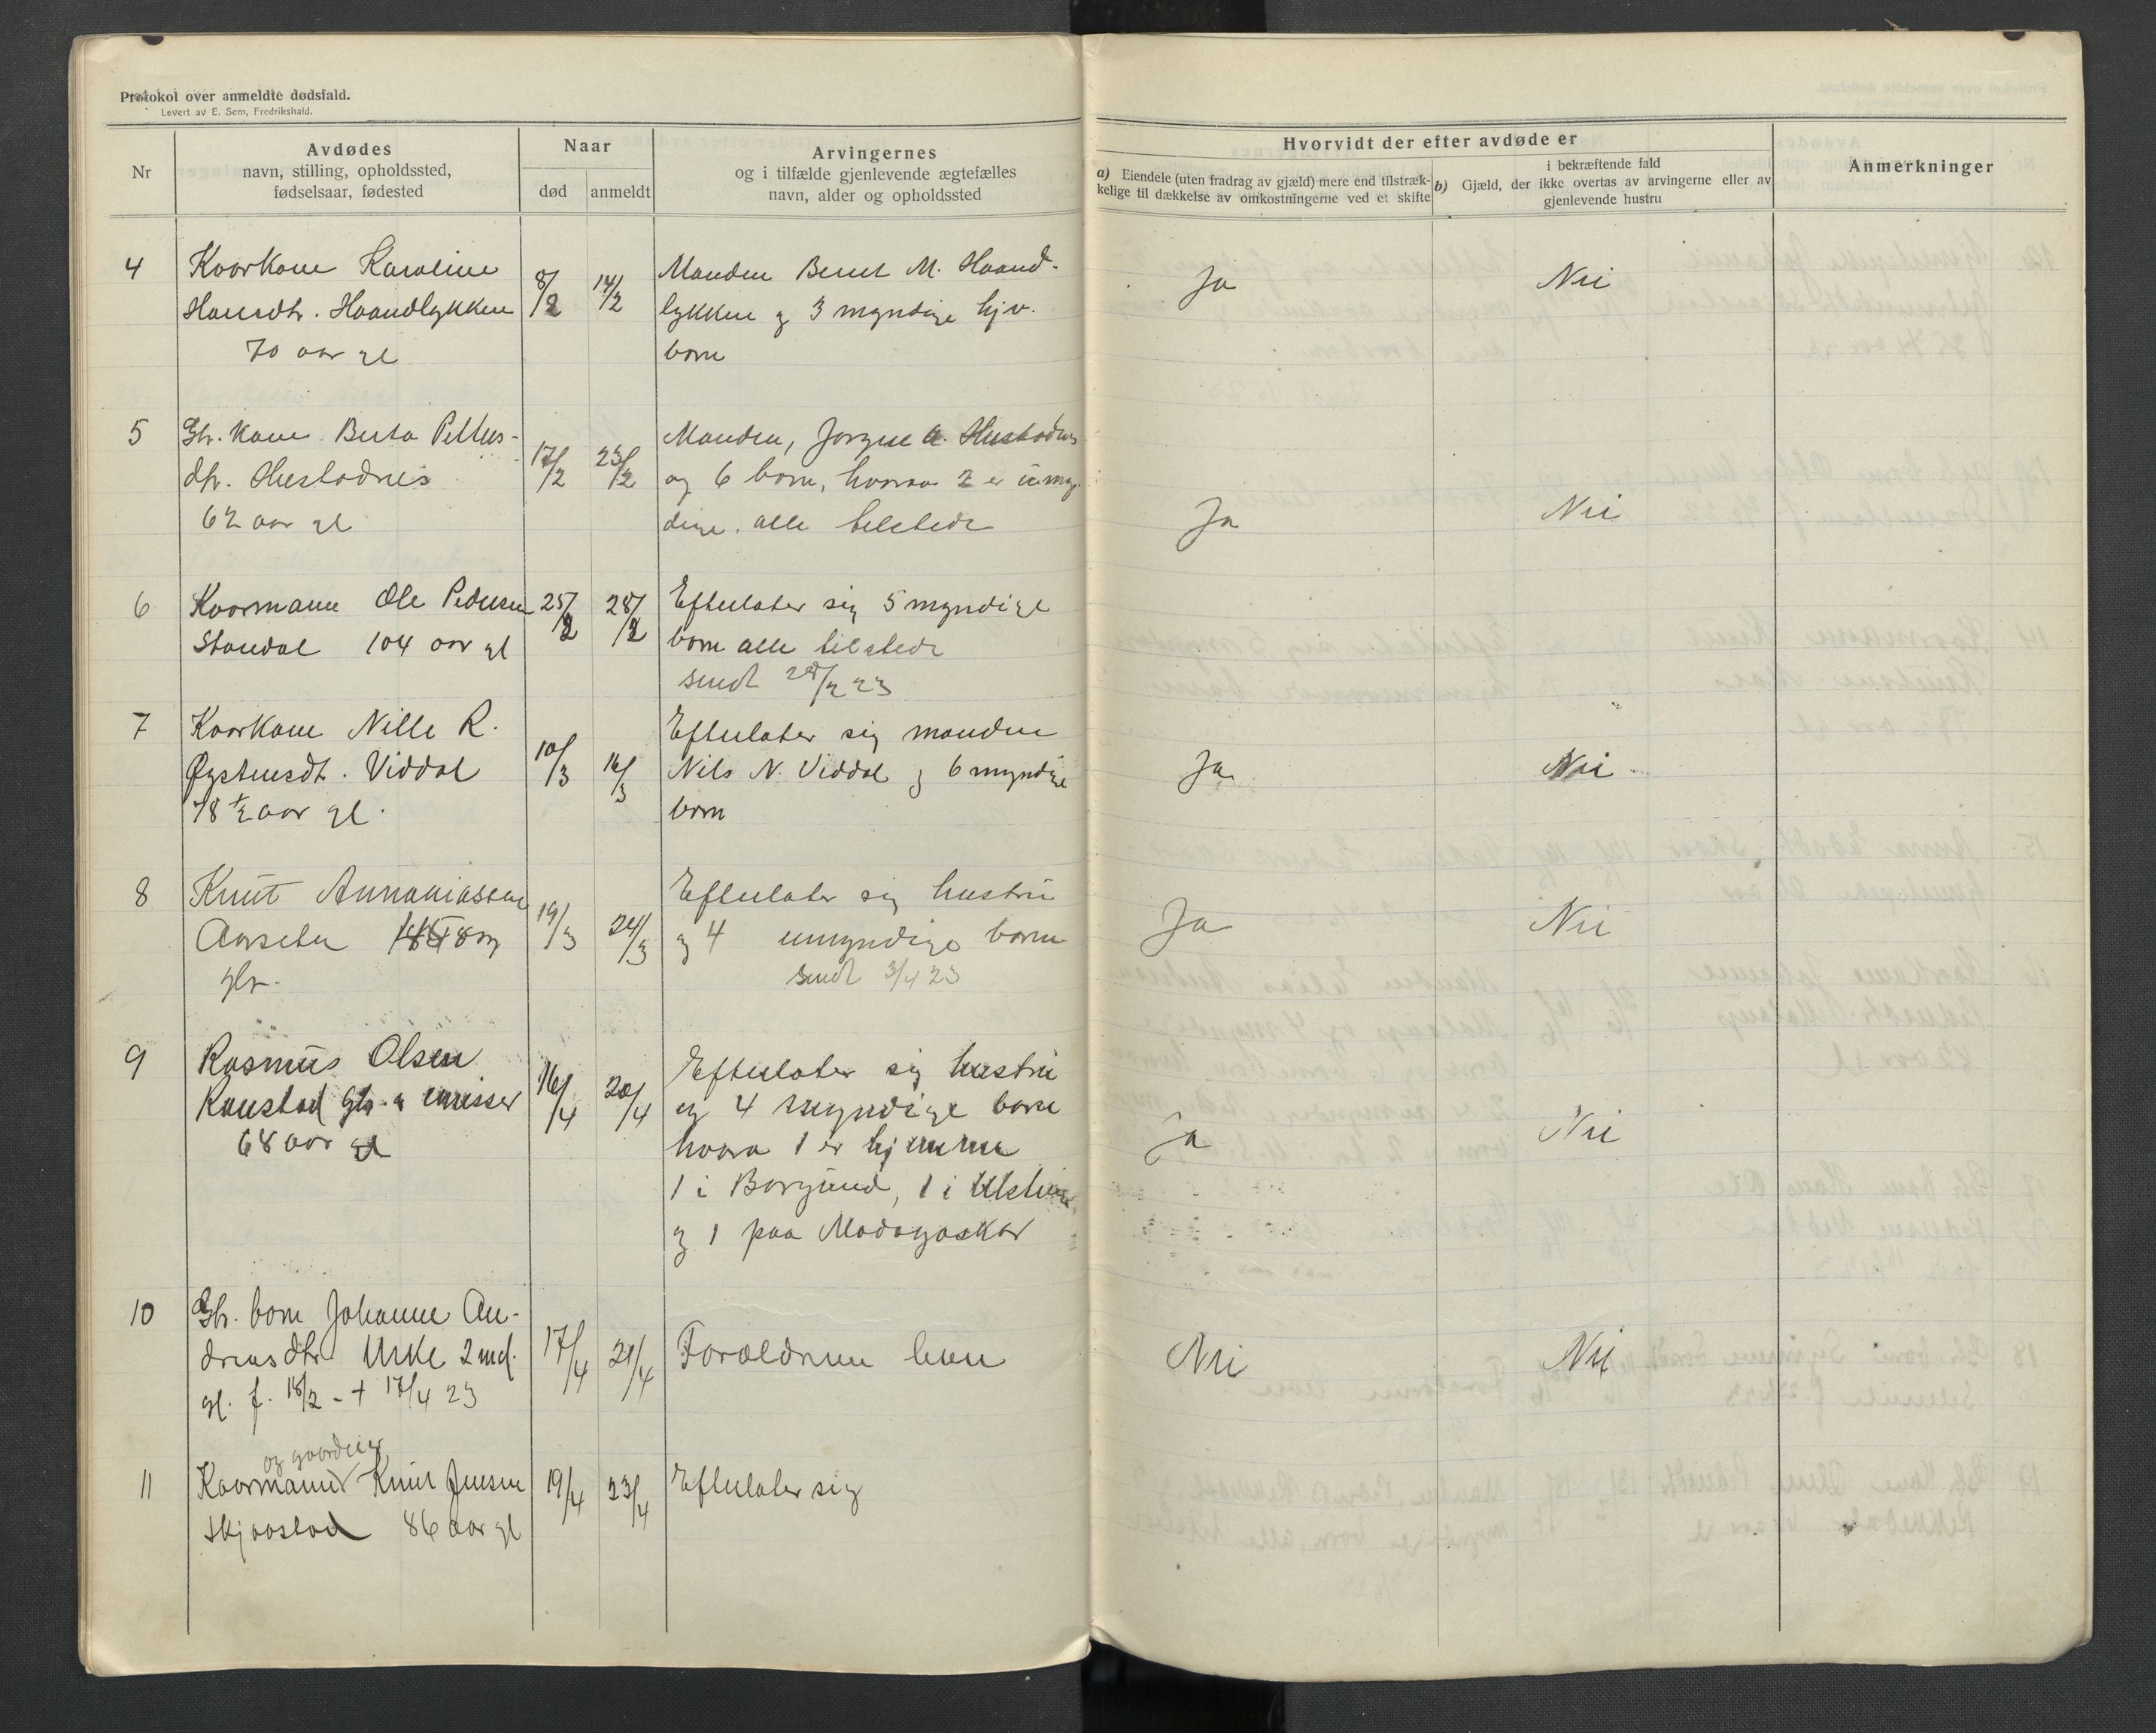 Protokol over anmeldte dødsfald.
Levert av E. Sem, Fredrikshald.
Nr
Avdødes
navn, stilling, opholdssted,
fødselsaar, fødested
Naar
død
anmeldt
Arvingernes
og i tilfælde gjenlevende ægtefælles
navn, alder og opholdssted
Hvorvidt der efter avdøde er
a) Eiendele (uten fradrag av gjæld) mere end tilstræk-
kelige til dækkelse av omkostningerne ved et skifte
i bekræftende fald
b) Gjæld, der ikke overtas av arvingerne eller av
gjenlevende hustru
Anmerkninger
4 Kaarkone Karoline 8/2 14/2 Manden Bernt M. Haand- Ja Nei
Hansdtr. Haandlykken lykken og 3 myndige hjv.
70 aar gl born
5 Gbr. Kone Berta Petters- 17/2 23/2 Manden, Jørgen Hustadnes
dtr. Hustadnes og 6 born, hvorav 2 er umyn-
62 aar gl dige. alle tilstede Ja Nei
6 Kaarmann Ole Pedersen 25/2 28/2 Efterlater sig 5 myndige
Standal 104 aar gl born alle tilstede
sendt 28/2 23
7 Kaarkone Nille R. Efterlater sig manden
Øystensdt. Viddal 10/3 16/3 Nils N. Viddal og 6 myndige Ja Nei
78 1/2 aar gl. born
8 Knut Annaniassen 19/3 24/3 Efterlater sig hustru Ja Nei
Aarseter og 4 umyndige born
gbr. sendt 3/4 23
9 Rasmus Olsen 16/4 20/4 Efterlater sig hustru
Kaustad gbr. og 4 myndige born
68 aar gl hvorav 1 er hjemme Ja Nei
1 i Borgund, 1 i Ulstein
og 1 paa Madagaskar
10 Gbr. born Johanne An-
dreasdtr. Urke 2 md. 17/4 21/4 Forældrene lever Nei Nei
gl. f. 18/2 - † 17/4 23
og gaardeier
11 Kaarmand Knut Jensen 19/4 23/4 Efterlater sig
Skjaastad 86 aar gl